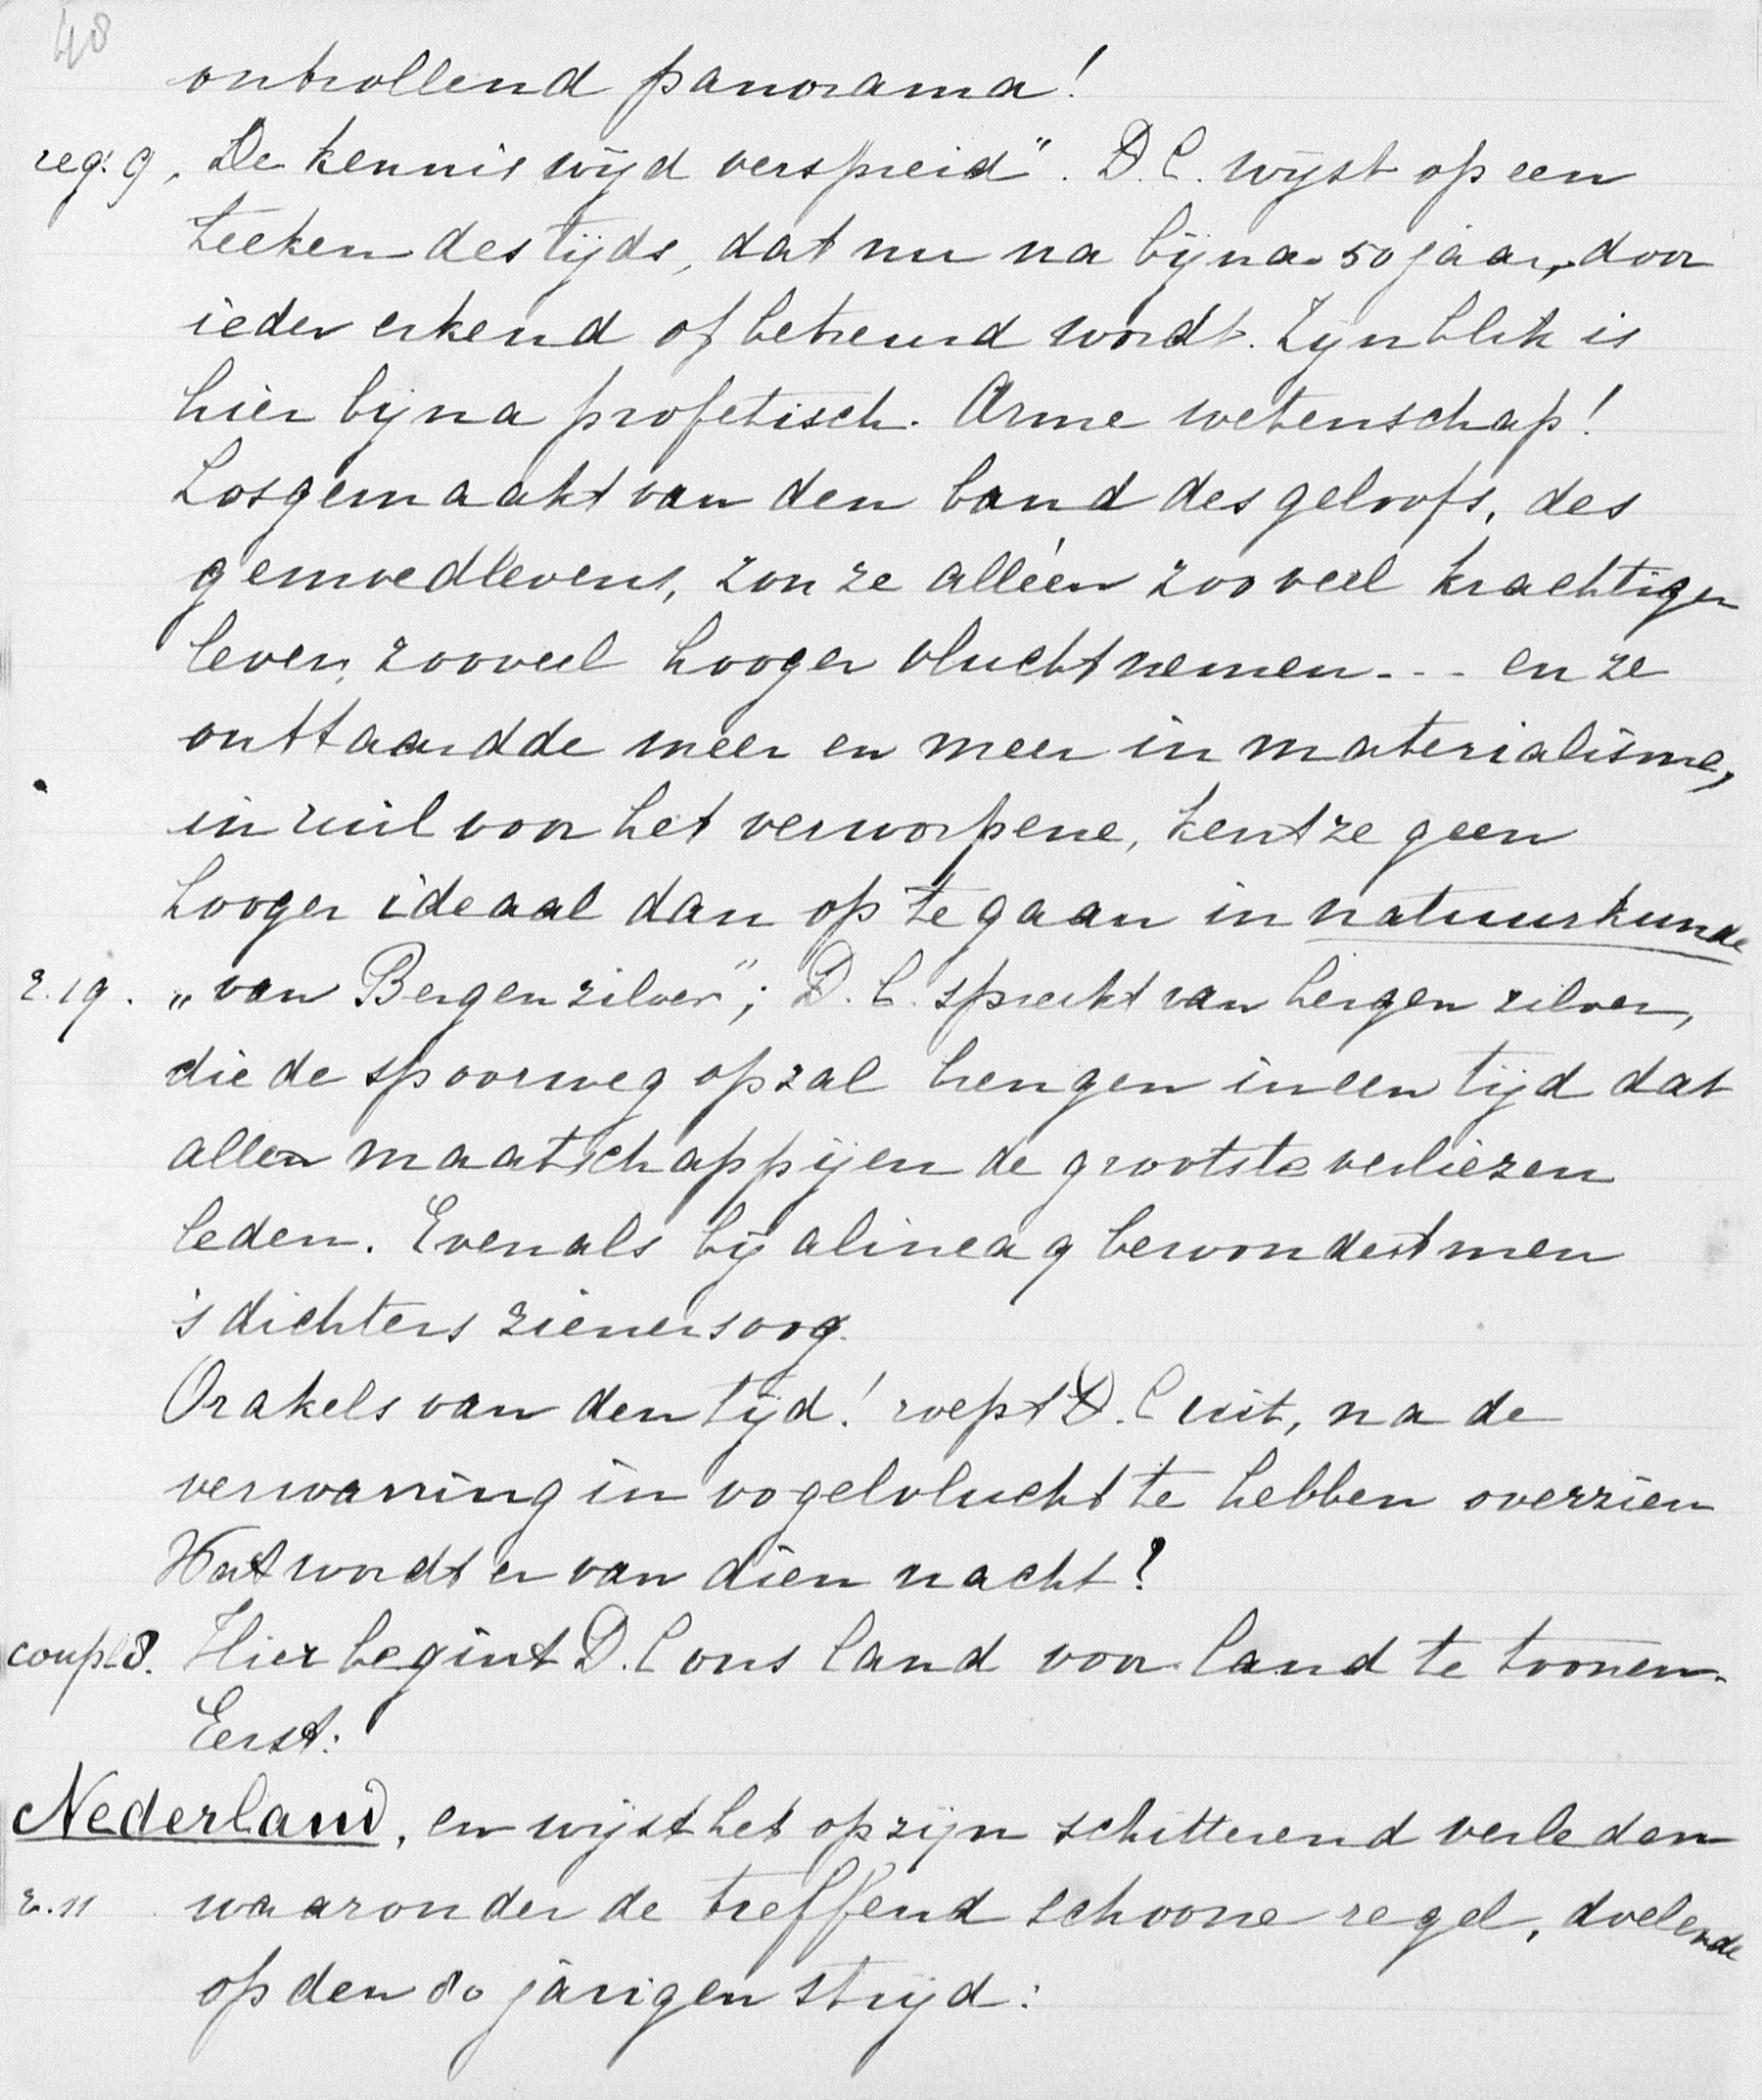 48
ontrollend panorama!
reg. 9, De kennis wijd verspreid". D. C. wijst op een
teeken des tijds, dat nu na bijna 50 jaar, door
ieder erkend of betreurd wordt. Zijn blik is
hier bijna profetisch. Arme wetenschap!
Losgemaakt van den band des geloofs, des
gemoedlevens, zou ze alléén zooveel krachtiger
leven, zooveel hooger vlucht nemen... en ze
onttaardde meer en meer in materialisme,
in ruil voor het verworpene, kent ze geen
hooger ideaal dan op te gaan in natuurkunde
r. 19. „van Bergen zilver"; D. C. spreekt van bergen zilver,
die de spoorweg op zal brengen in een tijd dat
allen maatschappijen de grootste verliezen
leden. Evenals bij alinea 9 bewondert men
's dichters zienersoog.
Orakels van den tijd! roept D. C uit, na de
verwarring in vogelvlucht te hebben overzien
Wat wordt er van dien nacht?
coupl 8. Hier begint D. C ons land voor land te toonen.
Eerst:
Nederland, en wijst het op zijn schitterend verleden
r. 11 waaronder de treffend schoone regel, doelende
op den 80 jarigen strijd: